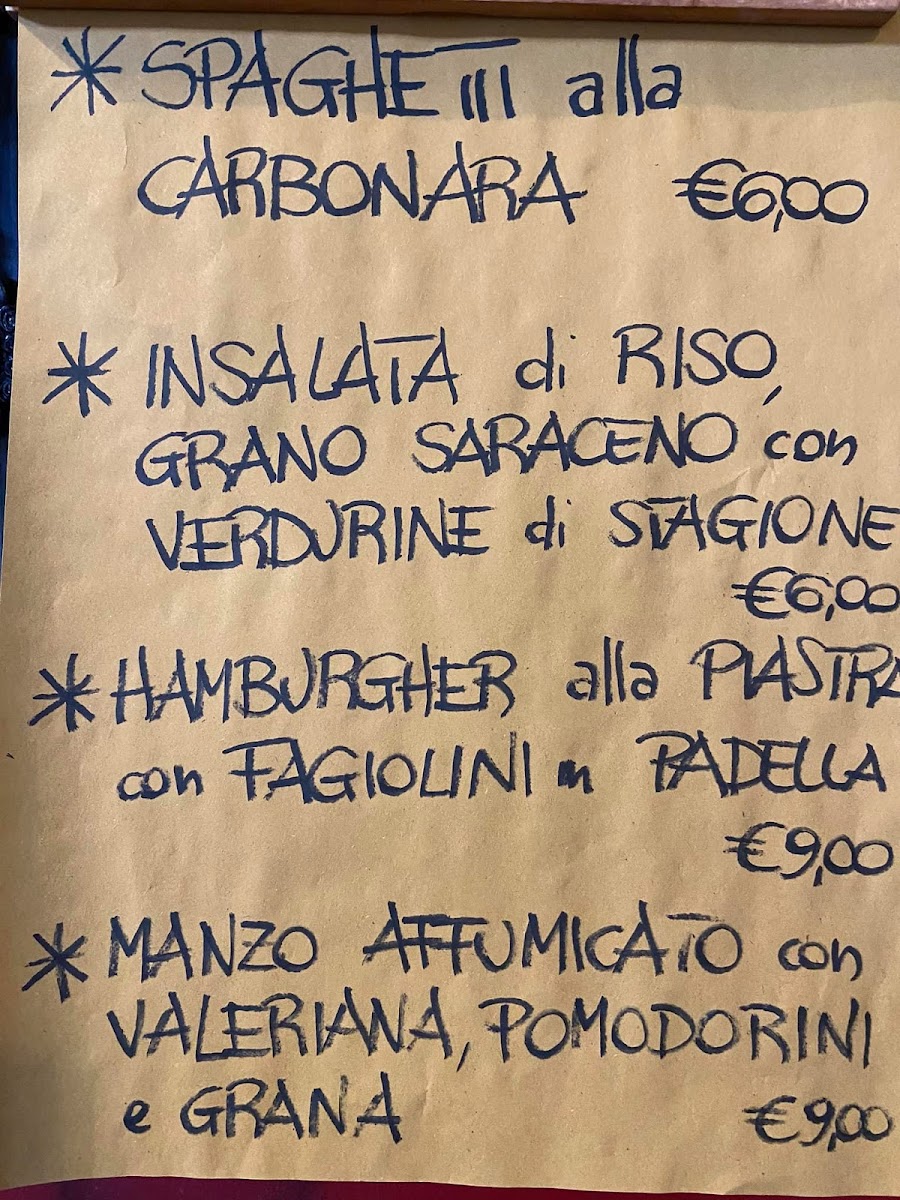 * SPAGHETTI alla
CARBONARA €6,00
* INSALATA di RISO,
GRANO SARACENO con
VERDURINE di STAGIONE
€6,00
* HAMBURGHER alla PIASTRA
con FAGIOLINI in PADELLA
€9,00
* MANZO AFFUMICATO con
VALERIANA, POMODORINI
e GRANA €9,00